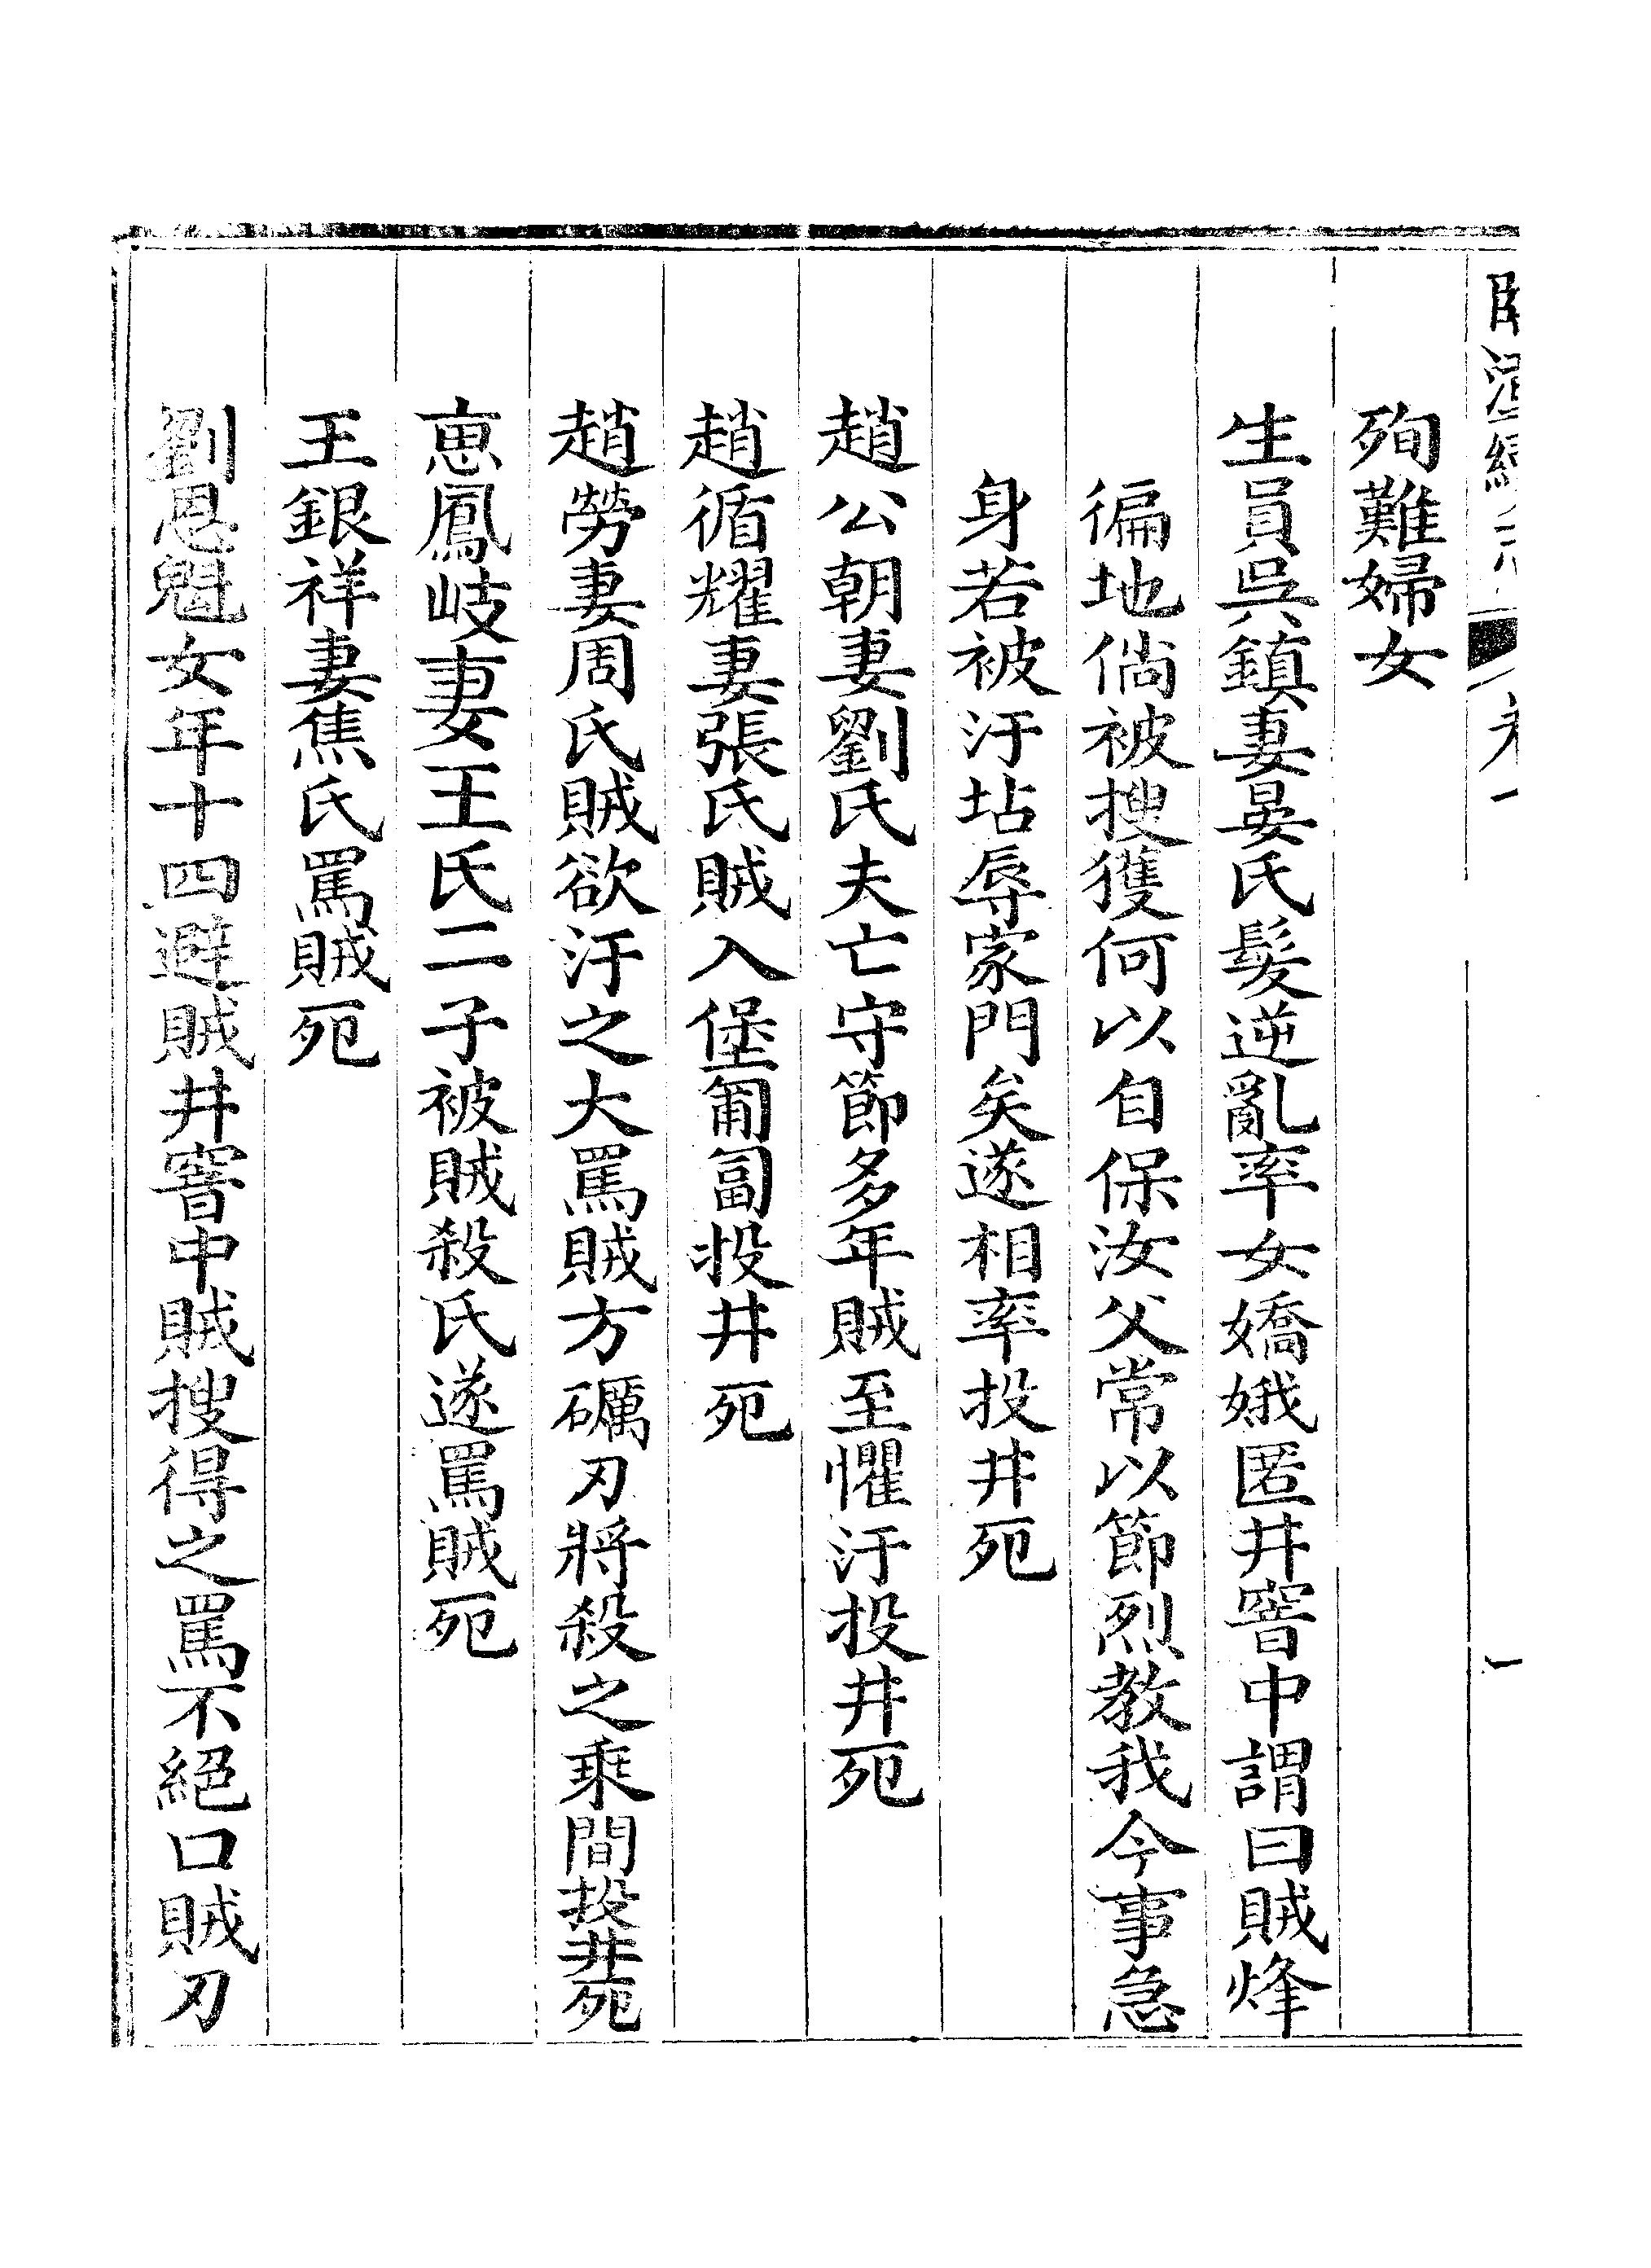 殉難婦女
生員吳鎮妻晏氏髮逆亂率女嬌娥匿井窨中謂曰賊烽
徧地倘被搜獲何以自保汝父常以節烈教我今事急
身若被汙坫辱家門矣遂相率投井死
趙公朝妻劉氏夫亡守節多年賊至懼汙投井死
趙循耀妻張氏賊入堡匍匐投井死
趙勞妻周氏賊欲汙之大罵賊方礪刃將殺之乘間投井死
恵鳳岐妻王氏二子被賊殺氏遂罵賊死
王銀祥妻焦氏罵賊死
劉恩魁女年十四避賊井窨中賊搜得之罵不絕口賊刃